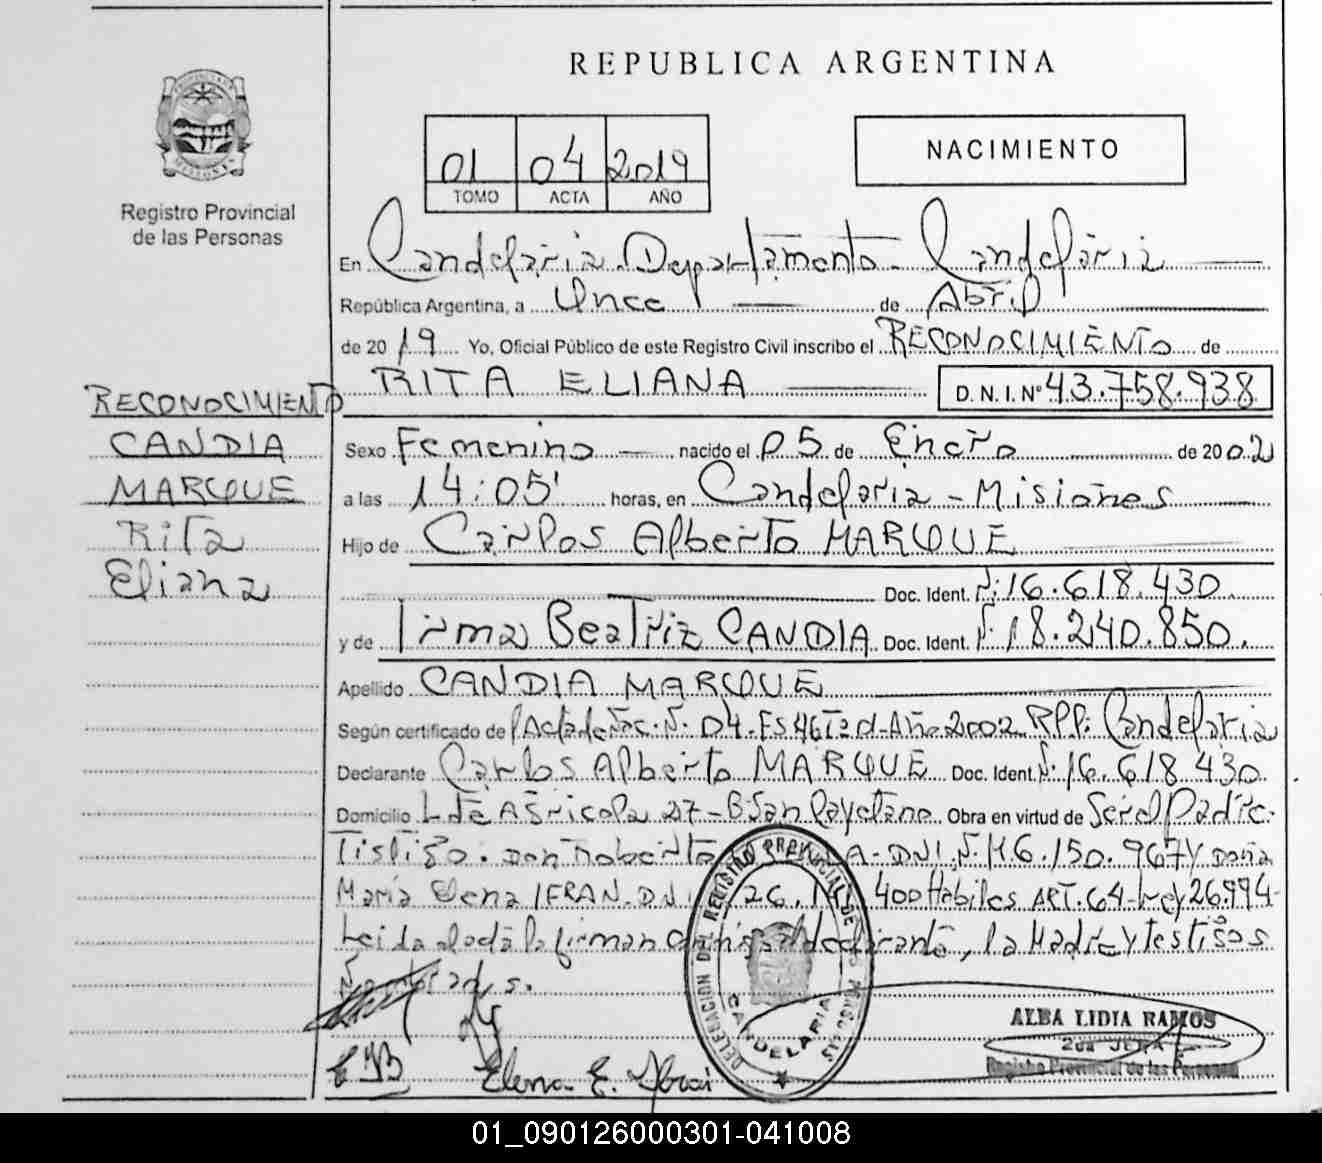 REPUBLICA ARGENTINA
01 04 2019
TOMO ACTA AÑO
NACIMIENTO
Registro Provincial
de las Personas
En Candelaria Departamento Candelaria
República Argentina, a Once de Abril
de 2019 Yo, Oficial Público de este Registro Civil inscribo el RECONOCIMIENTO de
RITA ELIANA D.N.I. Nº 43.758.938
RECONOCIMIENTO
CANDIA
MARQUE
Rita
Eliana
Sexo Femenino nacido el 05 de Enero de 2002
a las 14:05' horas, en Candelaria - Misiones
Hijo de Carlos Alberto MARQUE
Doc. Ident. Nº 16.618.430.
y de Irma Beatriz CANDIA Doc. Ident. Nº 18.240.850.
Apellido CANDIA MARQUE
Según certificado de Acta de Nac. Nº 04. Año 2002 RPP: Candelaria
Declarante Carlos Alberto MARQUE Doc. Ident. Nº 16.618.430.
Domicilio Lte Agricola 27 - B San Cayetano Obra en virtud de Ser el Padre.
Testigo. Don Roberto DNI Nº 967 y doña
María Elena IFRAN. D.N.I. 26. 400 Hábiles ART. 64 - Ley 26.994 -
Leida el acta la firman declarante, la Madre y testigos
Nombrados.
DELEGACION DEL REGISTRO PROVINCIAL DE LAS PERSONAS
CANDELARIA
ALBA LIDIA RAMOS
2da JEFA
Registro Provincial de las Personas
Elena E.
01_090126000301-041008